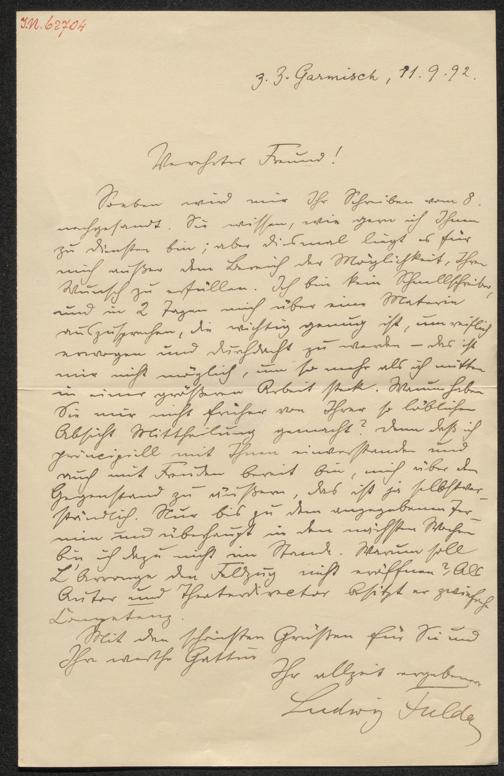 J.N. 62704
z. Z. Garmisch, 11.9.92.
Verehrter Freund!
Soeben wird mir Ihr Schreiben vom 8.
nachgesandt. Sie wissen, wie gern ich Ihnen
zu Diensten bin; aber diesmal liegt es für
mich außer dem Bereich der Möglichkeit, Ihren
Wunsch zu erfüllen. Ich bin kein Schnellschreiber,
und in 2 Tagen mich über eine Materie
auszusprechen, die wichtig genug ist, um reiflich
erwogen und durchdacht zu werden – das ist
mir nicht möglich, um so mehr als ich mitten
in einer größeren Arbeit stek. Warum haben
Sie mir nicht früher von Ihrer so löblichen
Absicht Mittheilung gemacht? Denn daß ich
principiell mit Ihnen einverstanden und
auch mit Freuden bereit bin, mich über den
Gegenstand zu äußern, das ist ja selbstver-
ständlich. Nur bis zu dem angegebenen Ter-
min und überhaupt in den nächsten Wochen
bin ich dazu nicht im Stande. Warum soll
L'Arronge den Feldzug nicht eröffnen? Als
Autor und Theaterdirector besitzt er zwiefache
Competenz.
Mit den schönsten Grüßen für Sie und
Ihre werthe Gattin
Ihr allzeit ergebener
Ludwig Fulda